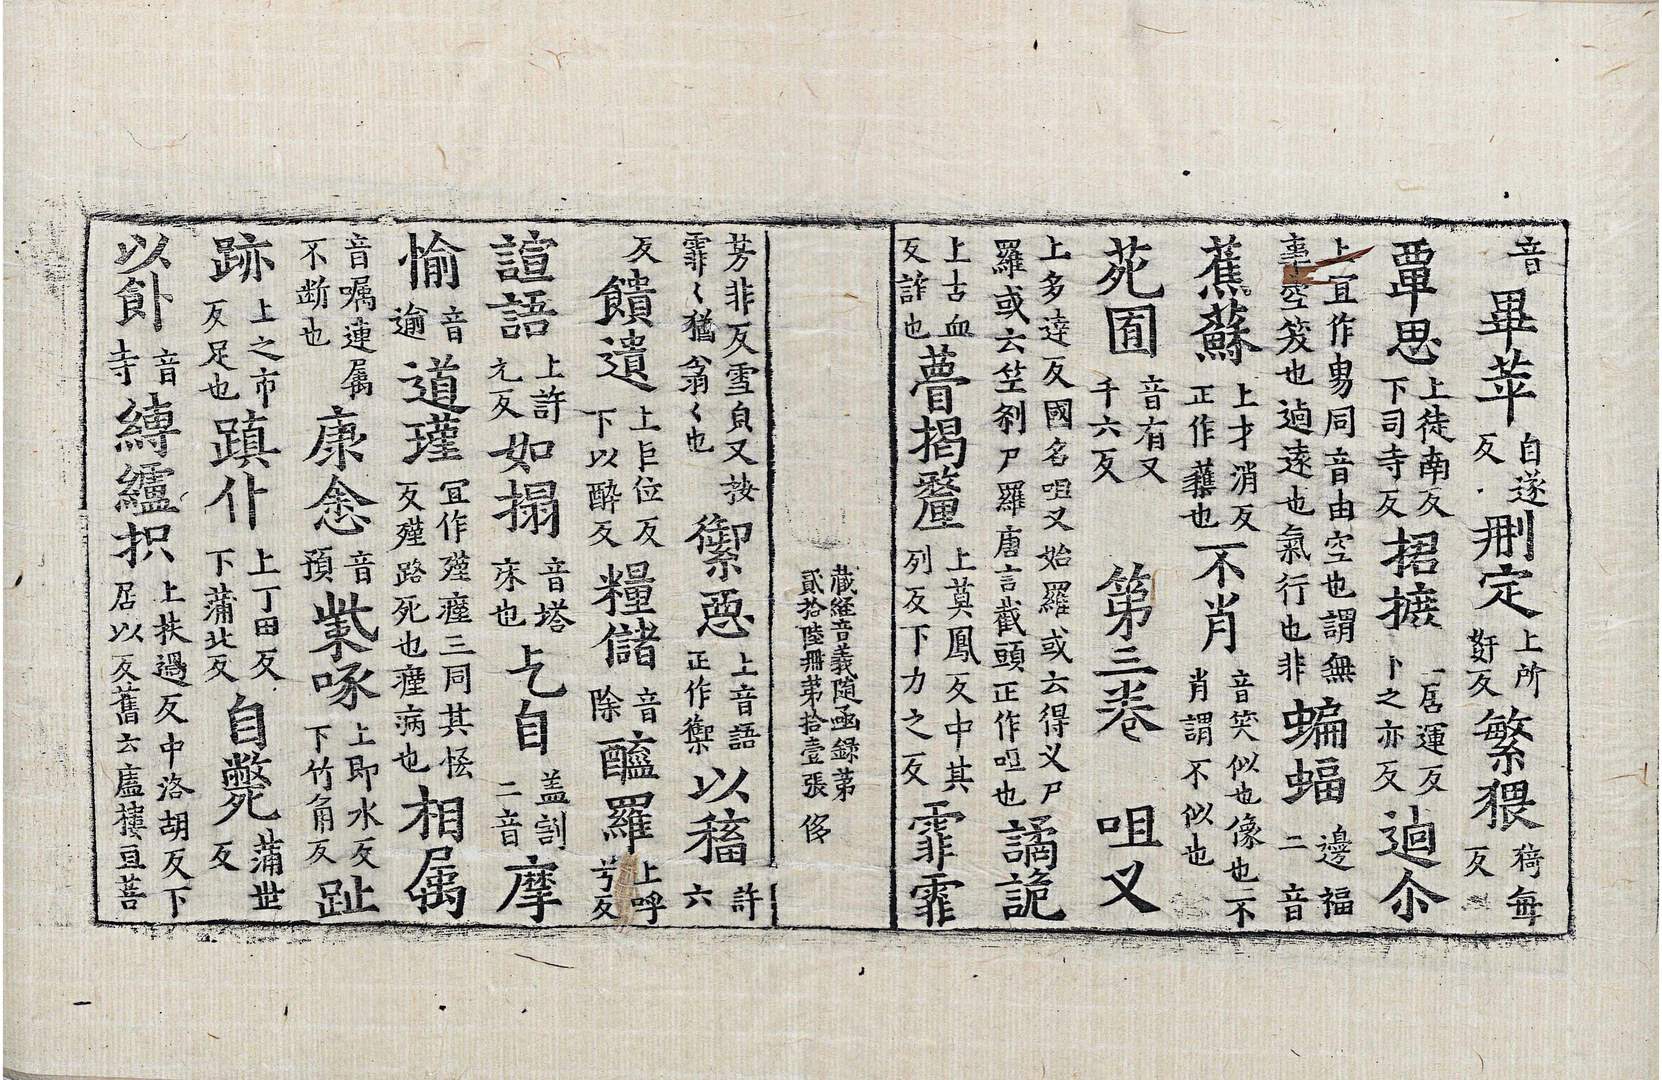 音 畢萃 自遂反 刪定 上所奸反 繁猥 猗每反
覃思 上徒南反下司寺反 捃摭 一居運反卜之亦反 逈尒
上冝作旉同音由空也謂無 邊福二音 蝙蝠
蕉蘇 上才消反正作蘸也 不肖 音笑似也像也不肖謂不似也
苑囿 音有又千六反 第三卷 咀叉
上多達反國名咀叉始羅或云得叉尸羅或云竺刹尸羅唐言截頭正作呾也 譎詭
上古血反詐也 瞢揭釐 上莫鳳反中其列反下力之反 霏霏
藏經音義隨函錄第貳拾陸冊第拾壹張 侈
芳非反雪皃又按霏〻猶翁〻也 禦惡 上音語正作禦 以稸 許六
反 饋遺 上巨位反下以醉反 糧儲 音除 醯羅 上呼兮反
諠語 上許元反 如搨 音塔床也 乞自 盖割二音 摩
愉 音逾 道瑾 冝作殣墐三同其恡反殣路死也瘽病也 相属
音囑連属不断也 康念 音預 㭰啄 上即水反下竹角反 趾
跡 上之市反足也 蹎仆 上丁田反下蒲北反 自斃 蒲世反
以飤 音寺 縛纑抧 上扶過反中洛胡反下居以反舊云盧樓亘菩